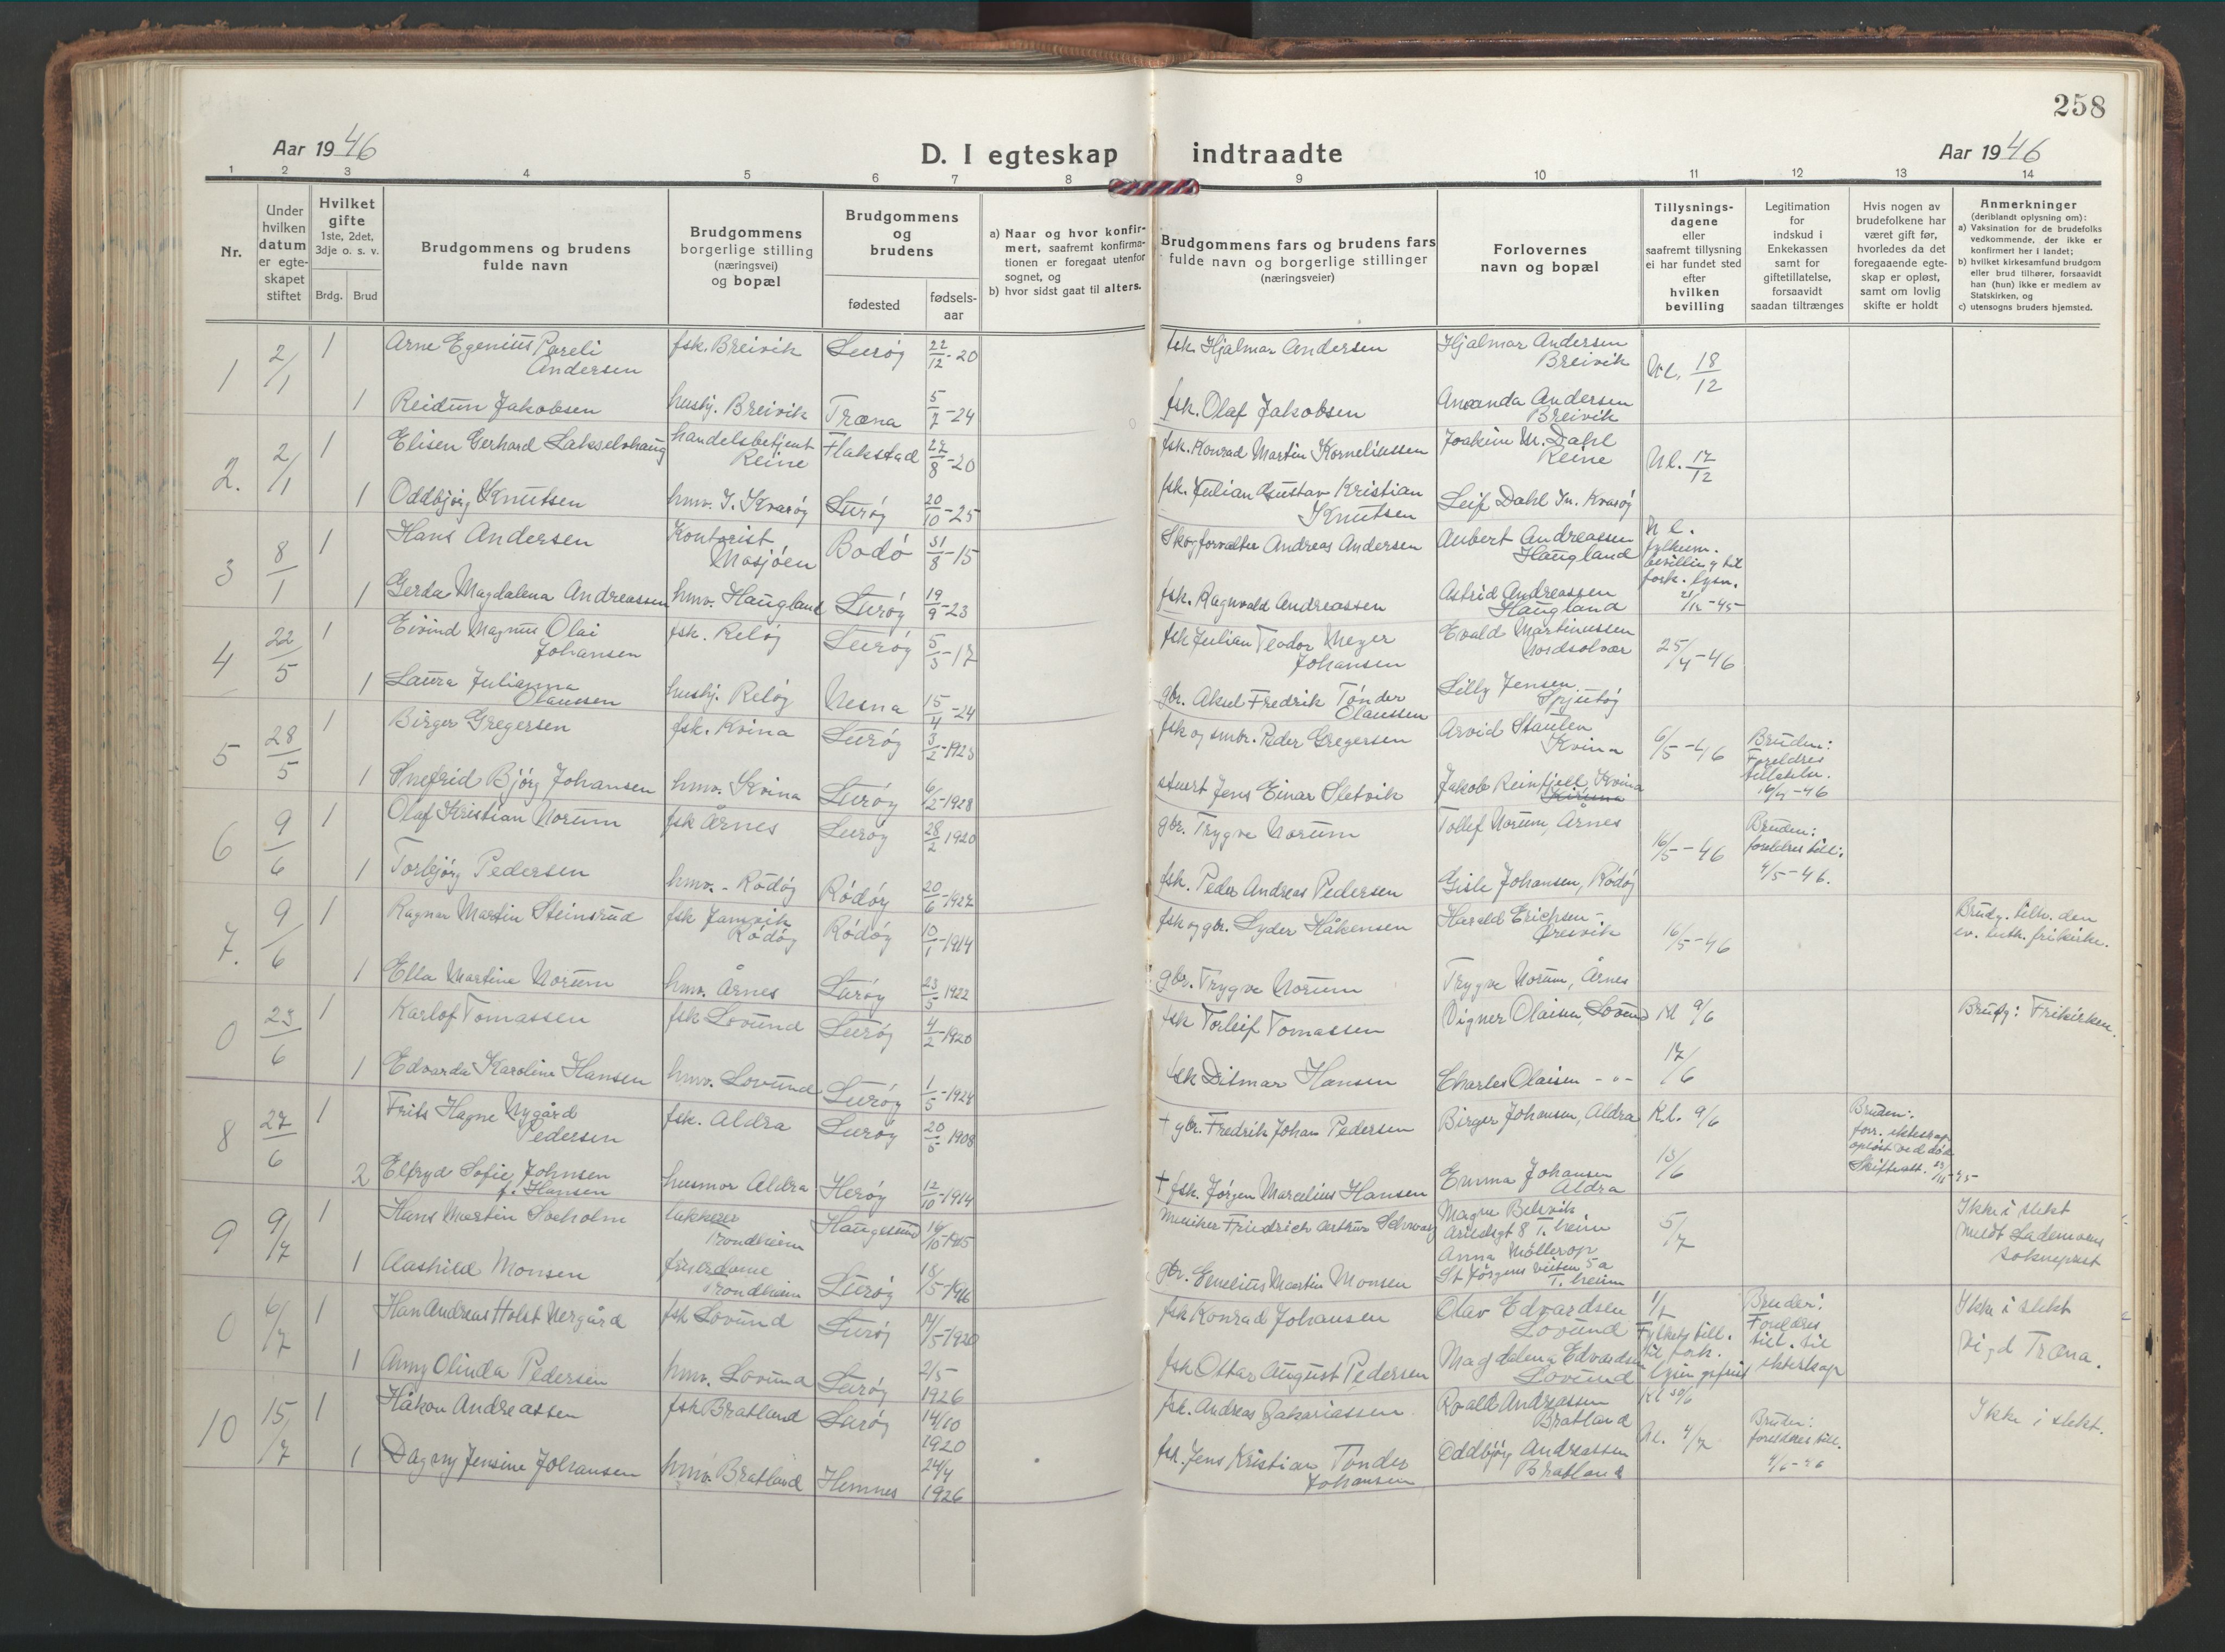 258
Aar 1946
D. I egteskap indtraadte
Aar 1946
1 2 3 4 5 6 7 8 9 10 11 12 13 14
Nr.
Under hvilken datum er egte-skapet stiftet
Hvilket gifte 1ste, 2det, 3dje o. s. v.
Brdg. Brud
Brudgommens og brudens fulde navn
Brudgommens borgerlige stilling (næringsvei) og bopæl
Brudgommens og brudens
fødested
fødsels-aar
a) Naar og hvor konfir-mert, saafremt konfirma-tionen er foregaat utenfor sognet, og
b) hvor sidst gaat til alters.
Brudgommens fars og brudens fars fulde navn og borgerlige stillinger (næringsveier)
Forlovernes navn og bopæl
Tillysnings-dagene eller saafremt tillysning ei har fundet sted efter hvilken bevilling
Legitimation for indskud i Enkekassen samt for giftetillatelse, forsaavidt saadan tiltrænges
Hvis nogen av brudefolkene har været gift før, hvorledes da det foregaaende egte-skap er opløst, samt om lovlig skifte er holdt
Anmerkninger (deriblandt oplysning om):
a) Vaksination for de brudefolks vedkommende, der ikke er konfirmert her i landet;
b) hvilket kirkesamfund brudgom eller brud tilhører, forsaavidt han (hun) ikke er medlem av Statskirken, og
c) utensogns bruders hjemsted.
1 2/1 1 Arne Egenius Pareli Andersen fsk. Breivik Lurøy 22/12-20 fsk. Hjalmar Andersen Hjalmar Andersen Breivik Kl. 18/12
1 Reidun Jakobsen husbj. Breivik Træna 5/7-24 fsk. Olaf Jakobsen Amanda Andersen Breivik
2. 2/1 1 Elisen Gerhard Lakselvhaug handelsbetjent Reine Flakstad 27/8-20 fsk. Konrad Martin Korneliussen Joakim M. Dahl Reine Kl. 17/12
1 Oddbjørg Knutsen hmv. I. Kvarøy Lurøy 20/10-25 fsk. Julian Gustav Kristian Knutsen Leif Dahl In. Kvarøy
3 8/1 1 Hans Andersen Kontorist Mosjøen Bodø 31/8-15 Skogforvalter Andreas Andersen Aubert Andreassen Haugland Kl. fylkesm. bevilling til fork. lysn. 21/12-45
1 Gerda Magdalena Andreassen hmv. Haugland Lurøy 19/9-23 fsk. Ragnvald Andreassen Astrid Andreassen Haugland
4 22/5 1 Eivind Magnus Olai Johansen fsk. Reløy Lurøy 5/3-17 fsk Julian Teodor Meyer Johansen Evald Martinussen Nordsolvær 25/4-46
1 Laura Julianna Olaussen husbj. Reløy Nesna 15/4-24 gbr. Aksel Fredrik Tønder Olaussen Lilly Jensen Spjutøy
5 28/5 1 Birger Gregersen fsk. Kvina Lurøy 3/2-1923 fsk og smbr. Peder Gregersen Arvid Staulen Kvina 6/5-46 Bruden: Foreldres tillatelse. 16/4-46
1 Snefrid Bjørg Johansen hmv. Kvina Lurøy 6/2-1928 stuert Jens Einar Sletvik Jakob Reinfjell Kvina
6 9/6 1 Olaf Kristian Norum fsk Årnes Lurøy 28/2 1920 gbr. Trygve Norum Tollef Norum, Årnes 16/5-46 Bruden: foreldres till: 4/5-46.
1 Torbjørg Pedersen hmv. - Rødøy Rødøy 20/6-1927 fsk. Peder Andreas Pedersen Gisle Johansen, Rødøy
7. 9/6 1 Ragnar Martin Steinsrud fsk Jamvik Rødøy Rødøy 10/1-1914 fsk og gbr. Lyder Håkensen Harald Erichsen - Øresvik 16/5-46 Brudg. tilh. den ev. luth. frikirke.
1 Ella Martine Norum hmv. Årnes Lurøy 23/5 1922 gbr. Trygve Norum Trygve Norum, Årnes
0 23/6 1 Karlof Tomassen fsk Lovund Lurøy 4/2-1920 fsk Torleif Tomassen Vigner Olaisen, Lovund Kl 9/6 Brudg: Frikirken.
1 Edvarda Karoline Hansen hmv. Lovund Lurøy 1/5-1924 fsk Ditmar Hansen Charles Olaisen - " - 17/6
8 27/6 1 Frits Hagne Nygård Pedersen fsk. Aldra Lurøy 20/5-1908 + gbr. Fredrik Johan Pedersen Birger Johansen, Aldra Kl. 9/6 Bruden: forr. ekteskap opløst ved død. Skifteatt.
2 Elfryd Sofie Johnsen f. Hansen husmor Aldra Herøy 12/10-1914 + fsk. Jørgen Marcelius Hansen Emma Johansen Aldra 13/6
9 9/7 1 Hans Martin Soeholm lakkerer Trondheim Haugesund 16/10-1915 Musiker Friedrich Arthur Schwarz Magne Belsvik T.heim 5/7 Ikke i slekt Meldt Lademoens sokneprest
1 Aashild Monsen frisørdame Trondheim Lurøy 18/5-1916 gbr. Emelius Martin Monsen Anna Møllerop St Jørgens veiten 5a T.heim
0 6/7 1 Han Andreas Holst Nergård fsk Lovund Lurøy 14/5-1920 fsk Konrad Johansen Olav Edvardsen Lovund 1/7 Fylkets till. til fork. lysningsfrist Bruder: Foreldres till. til ekteskap Ikke i slekt Vigd Træna.
1 Anny Olinda Pedersen hmv. Lovund Lurøy 2/5 1926 fsk Ottar August Pedersen Magdalena Edvardsen Lovund
10 15/7 1 Håkon Andreassen fsk Bratland Lurøy 14/10 1920 fsk. Andreas Zakariassen Roald Andreassen Bratland Kl 30/6 Bruder: foreldres till. Ikke i slekt.
1 Dagny Jensine Johansen hmv. Bratland Hemnes 24/4 1926 fsk. Jens Kristian Tønder Johansen Oddbjørg Andreassen Bratland Kl. 4/7